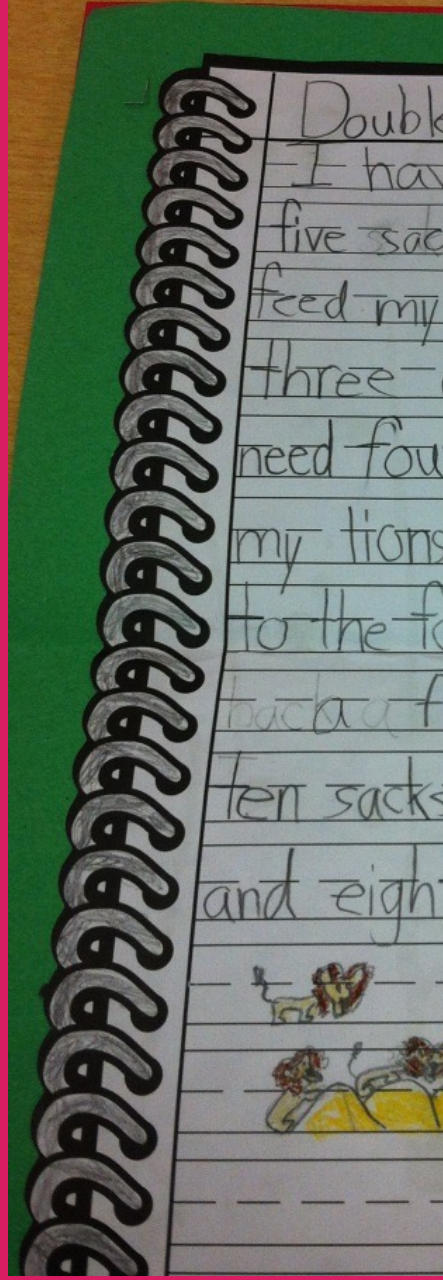 Doubl
I hav
five sac
feed my
three
need fou
my tions
to the fo
back a f
ten sacks
and eigh